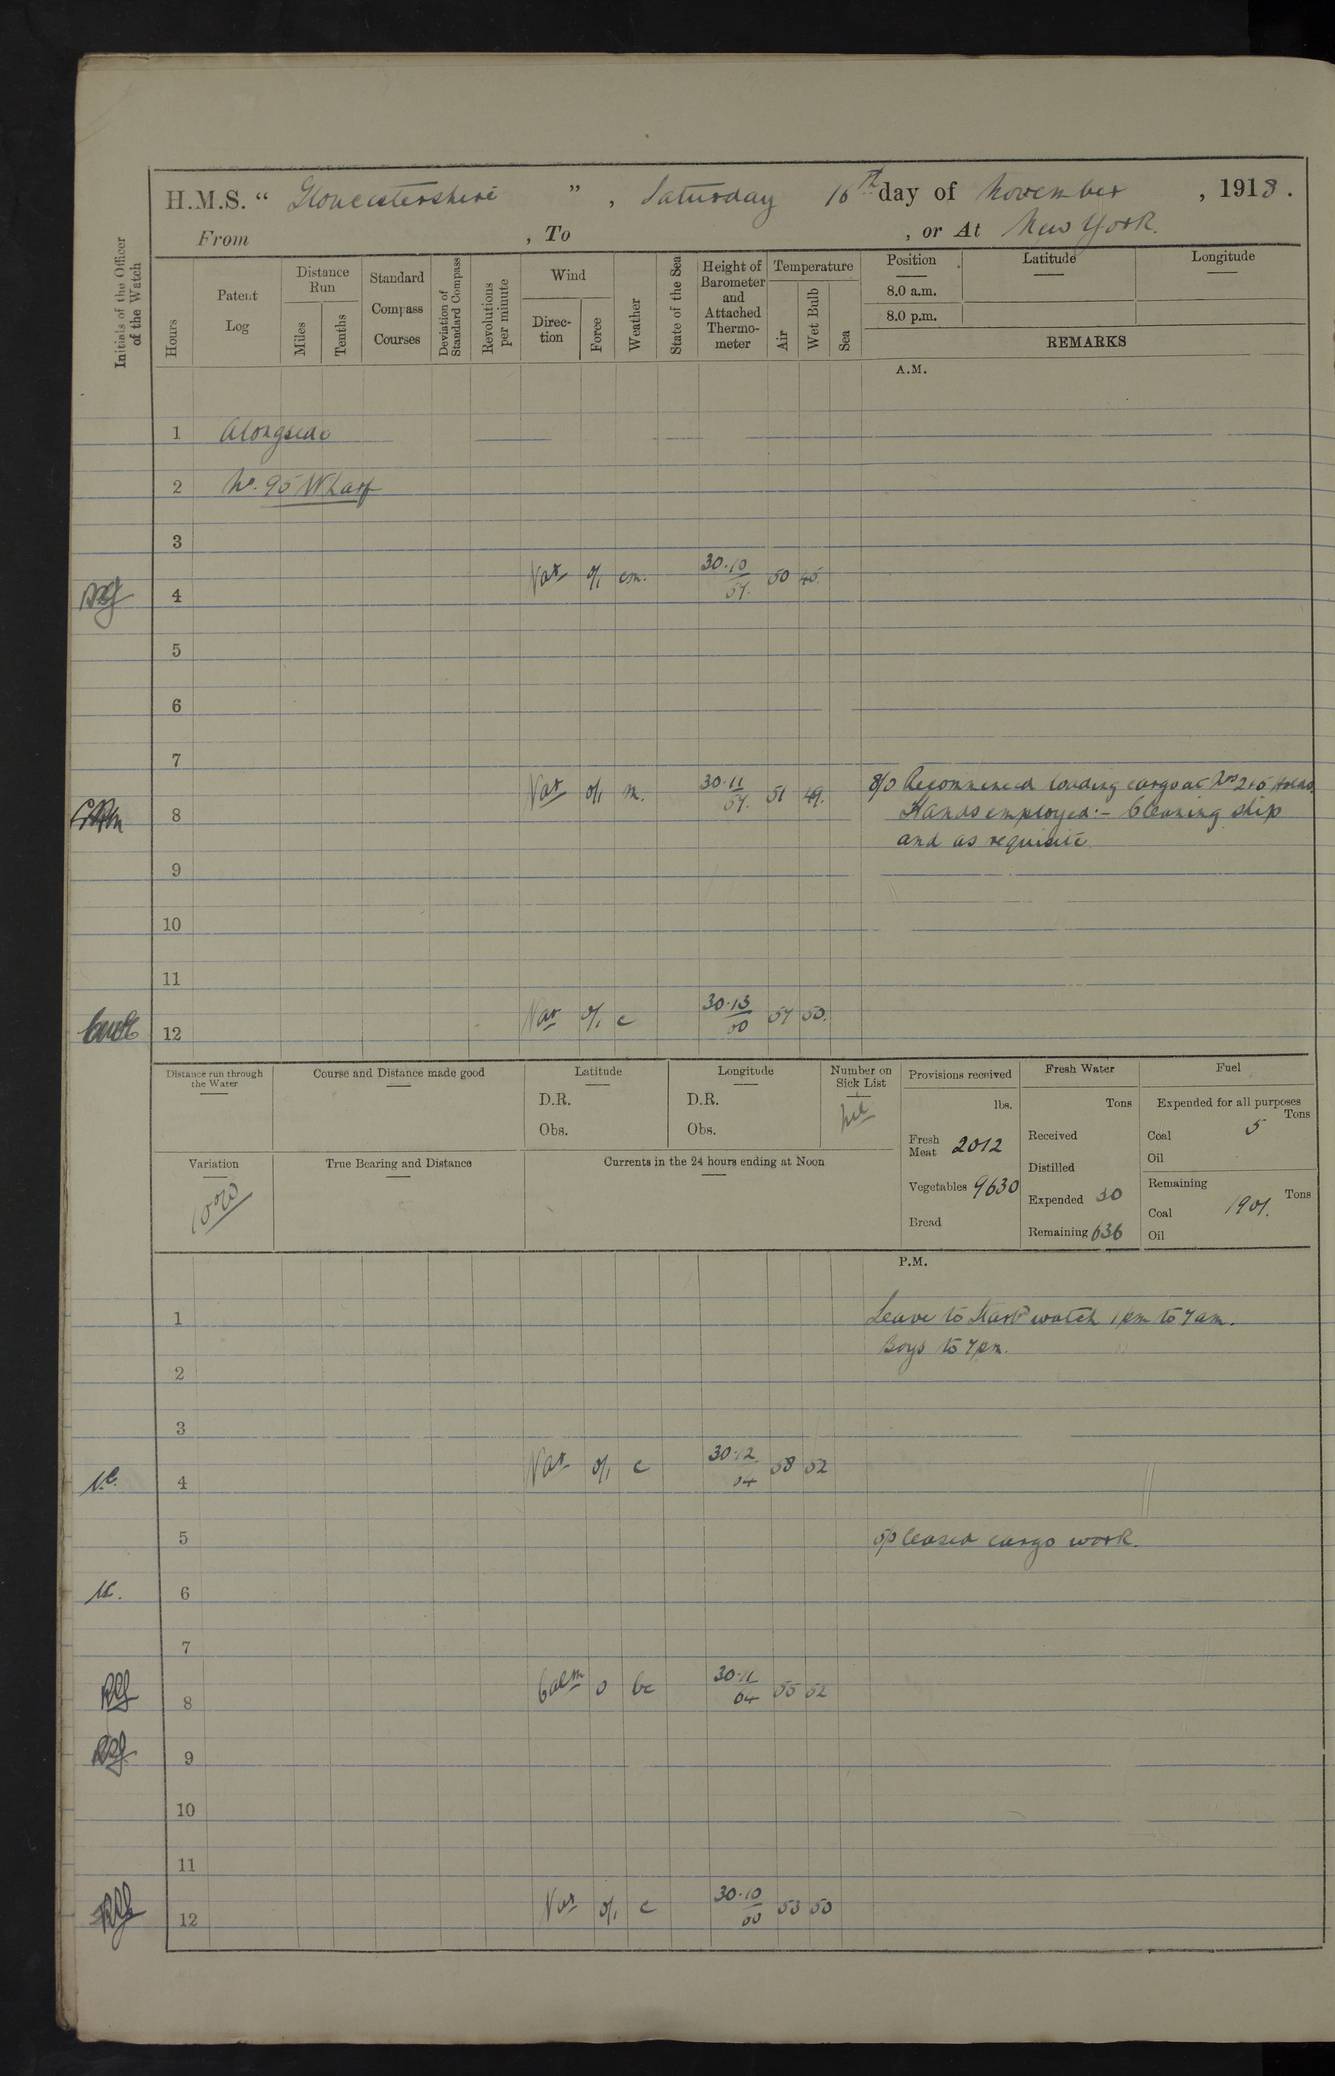 H.M.S. “ Gloucestershire ”, Saturday 16th day of November, 1918.
From , To , or At New York.
Initials of the Officer of the Watch
Hours
Patent Log
Distance Run
Miles
Tenths
Standard Compass Courses
Deviation of Standard Compass
Revolutions per minute
Wind
Direc-tion
Force
Weather
State of the Sea
Height of Barometer and Attached Thermo-meter
Temperature
Air
Wet Bulb
Sea
Position
8.0 a.m.
8.0 p.m.
Latitude
Longitude
REMARKS
A.M.
1 Alongside
2 No. 95 Wharf
3
4 Var 0/1 cm. 30.10 50 45.
5
6
7
8 Var 0/1 m. 30.11 51 49. 8/0 Recommenced loading cargo at Nos 2 & 5 Holds.
Hands employed:- Cleaning ship
and as requisite
9
10
11
12 Var 0/1 c 30.13 57 53.
Distance run through the Water
Course and Distance made good
Latitude
D.R.
Obs.
Longitude
D.R.
Obs.
Number on Sick List
Nil
Provisions received
lbs.
Fresh Meat 2012
Vegetables 9630
Bread
Fresh Water
Tons
Received
Distilled
Expended 30
Remaining 636
Fuel
Expended for all purposes
Tons
Coal 5
Oil
Remaining
Tons
Coal 1901.
Oil
Variation
True Bearing and Distance
Currents in the 24 hours ending at Noon
P.M.
1 Leave to Starbd watch 1 pm to 7 am.
Boys to 7 pm.
2
3
4 Var 0/1 c 30.12 58 52
5 5/0 Ceased cargo work.
6
7
8 Calm 0 bc 30.11 64 55 52
9
10
11
12 Var 0/1 c 30.10 53 50